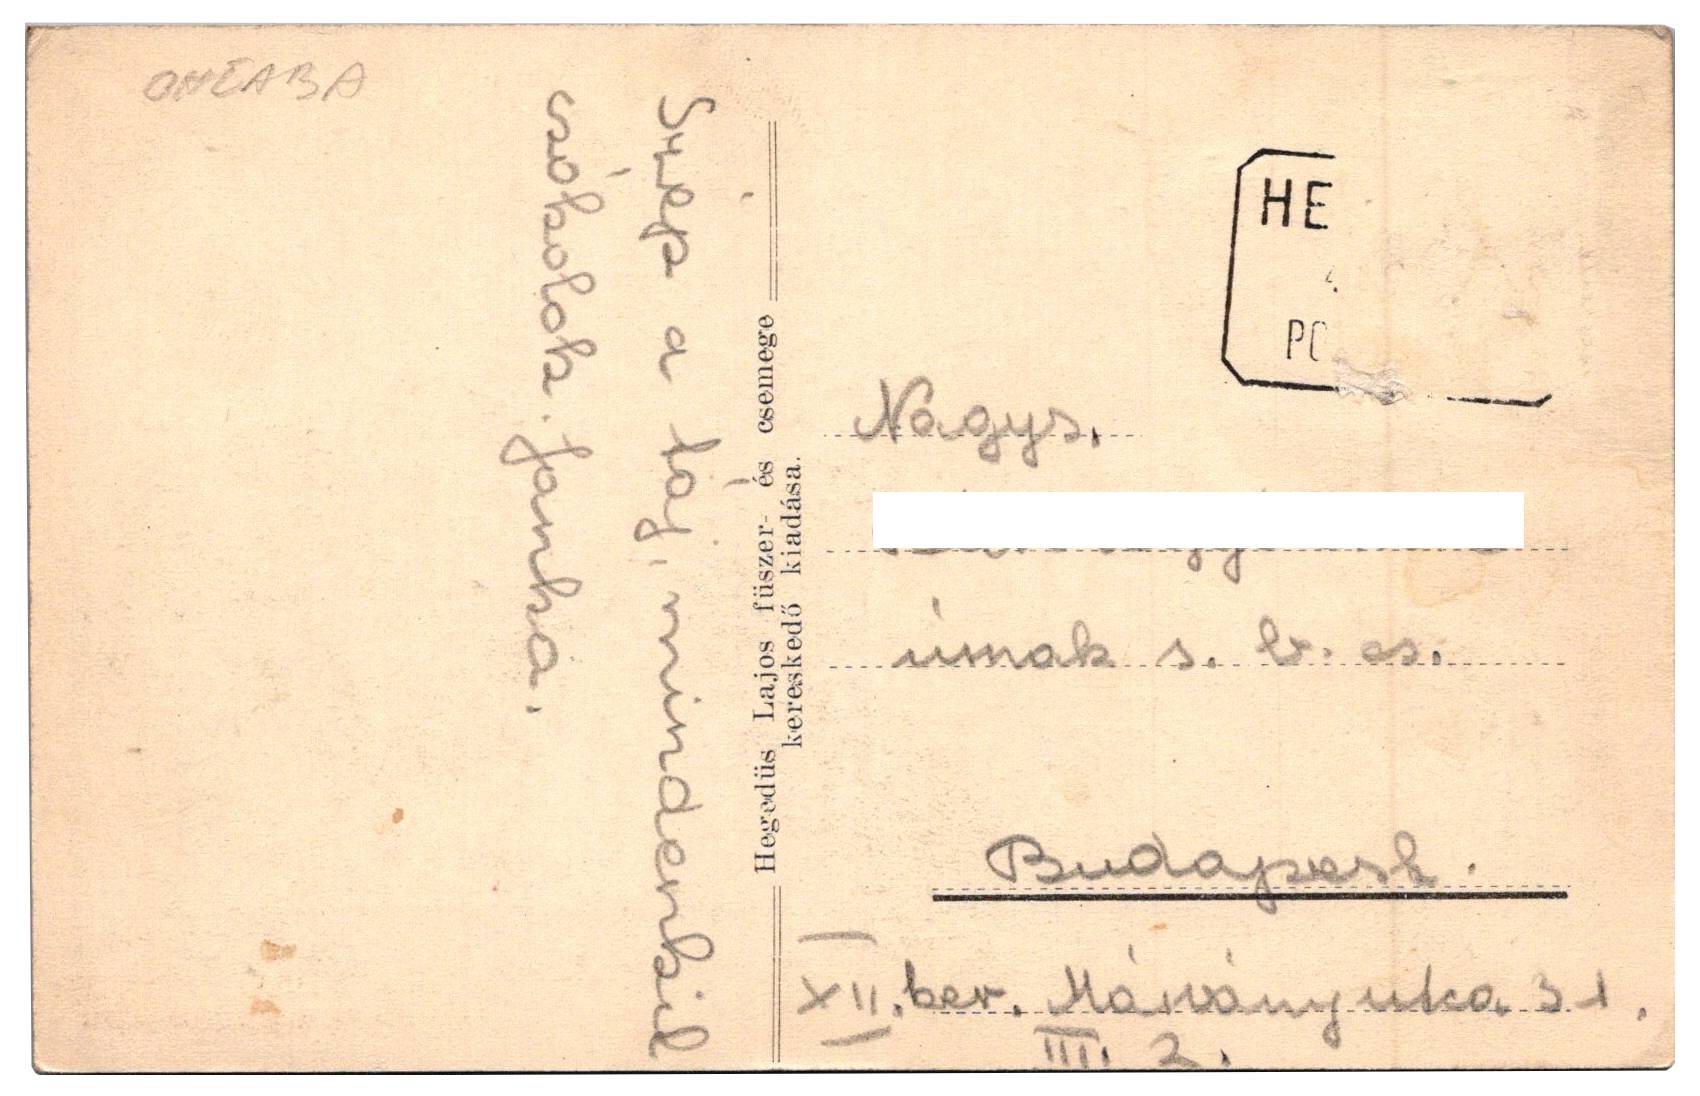 OHÉABA
Szép a táj, mindenkit
csókolok Janka.
Hegedüs Lajos füszer- és csemege
kereskedő kiadása.
HE
PO
Nagys.
úrnak s. b. cs.
Budapest.
XII. ker. Márvány utca 31.
III. 2.